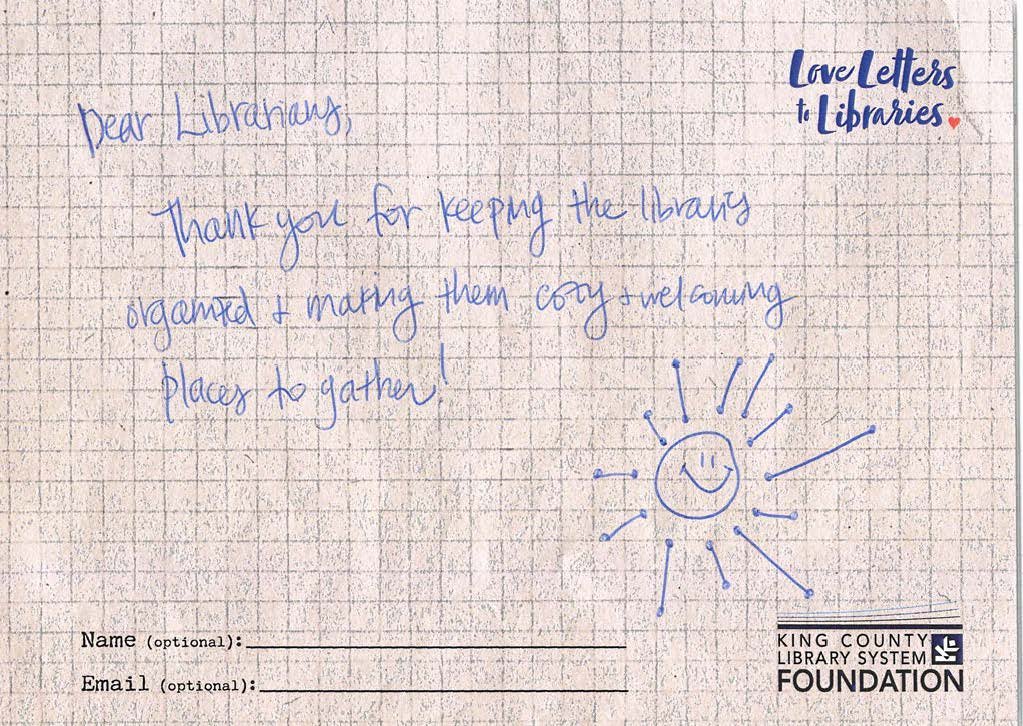 Love Letters
to Libraries
Dear Librarians,
Thank you for keeping the libraries
organized + making them cozy + welcoming
places to gather!
Name (optional):
Email (optional):
KING COUNTY
LIBRARY SYSTEM
FOUNDATION